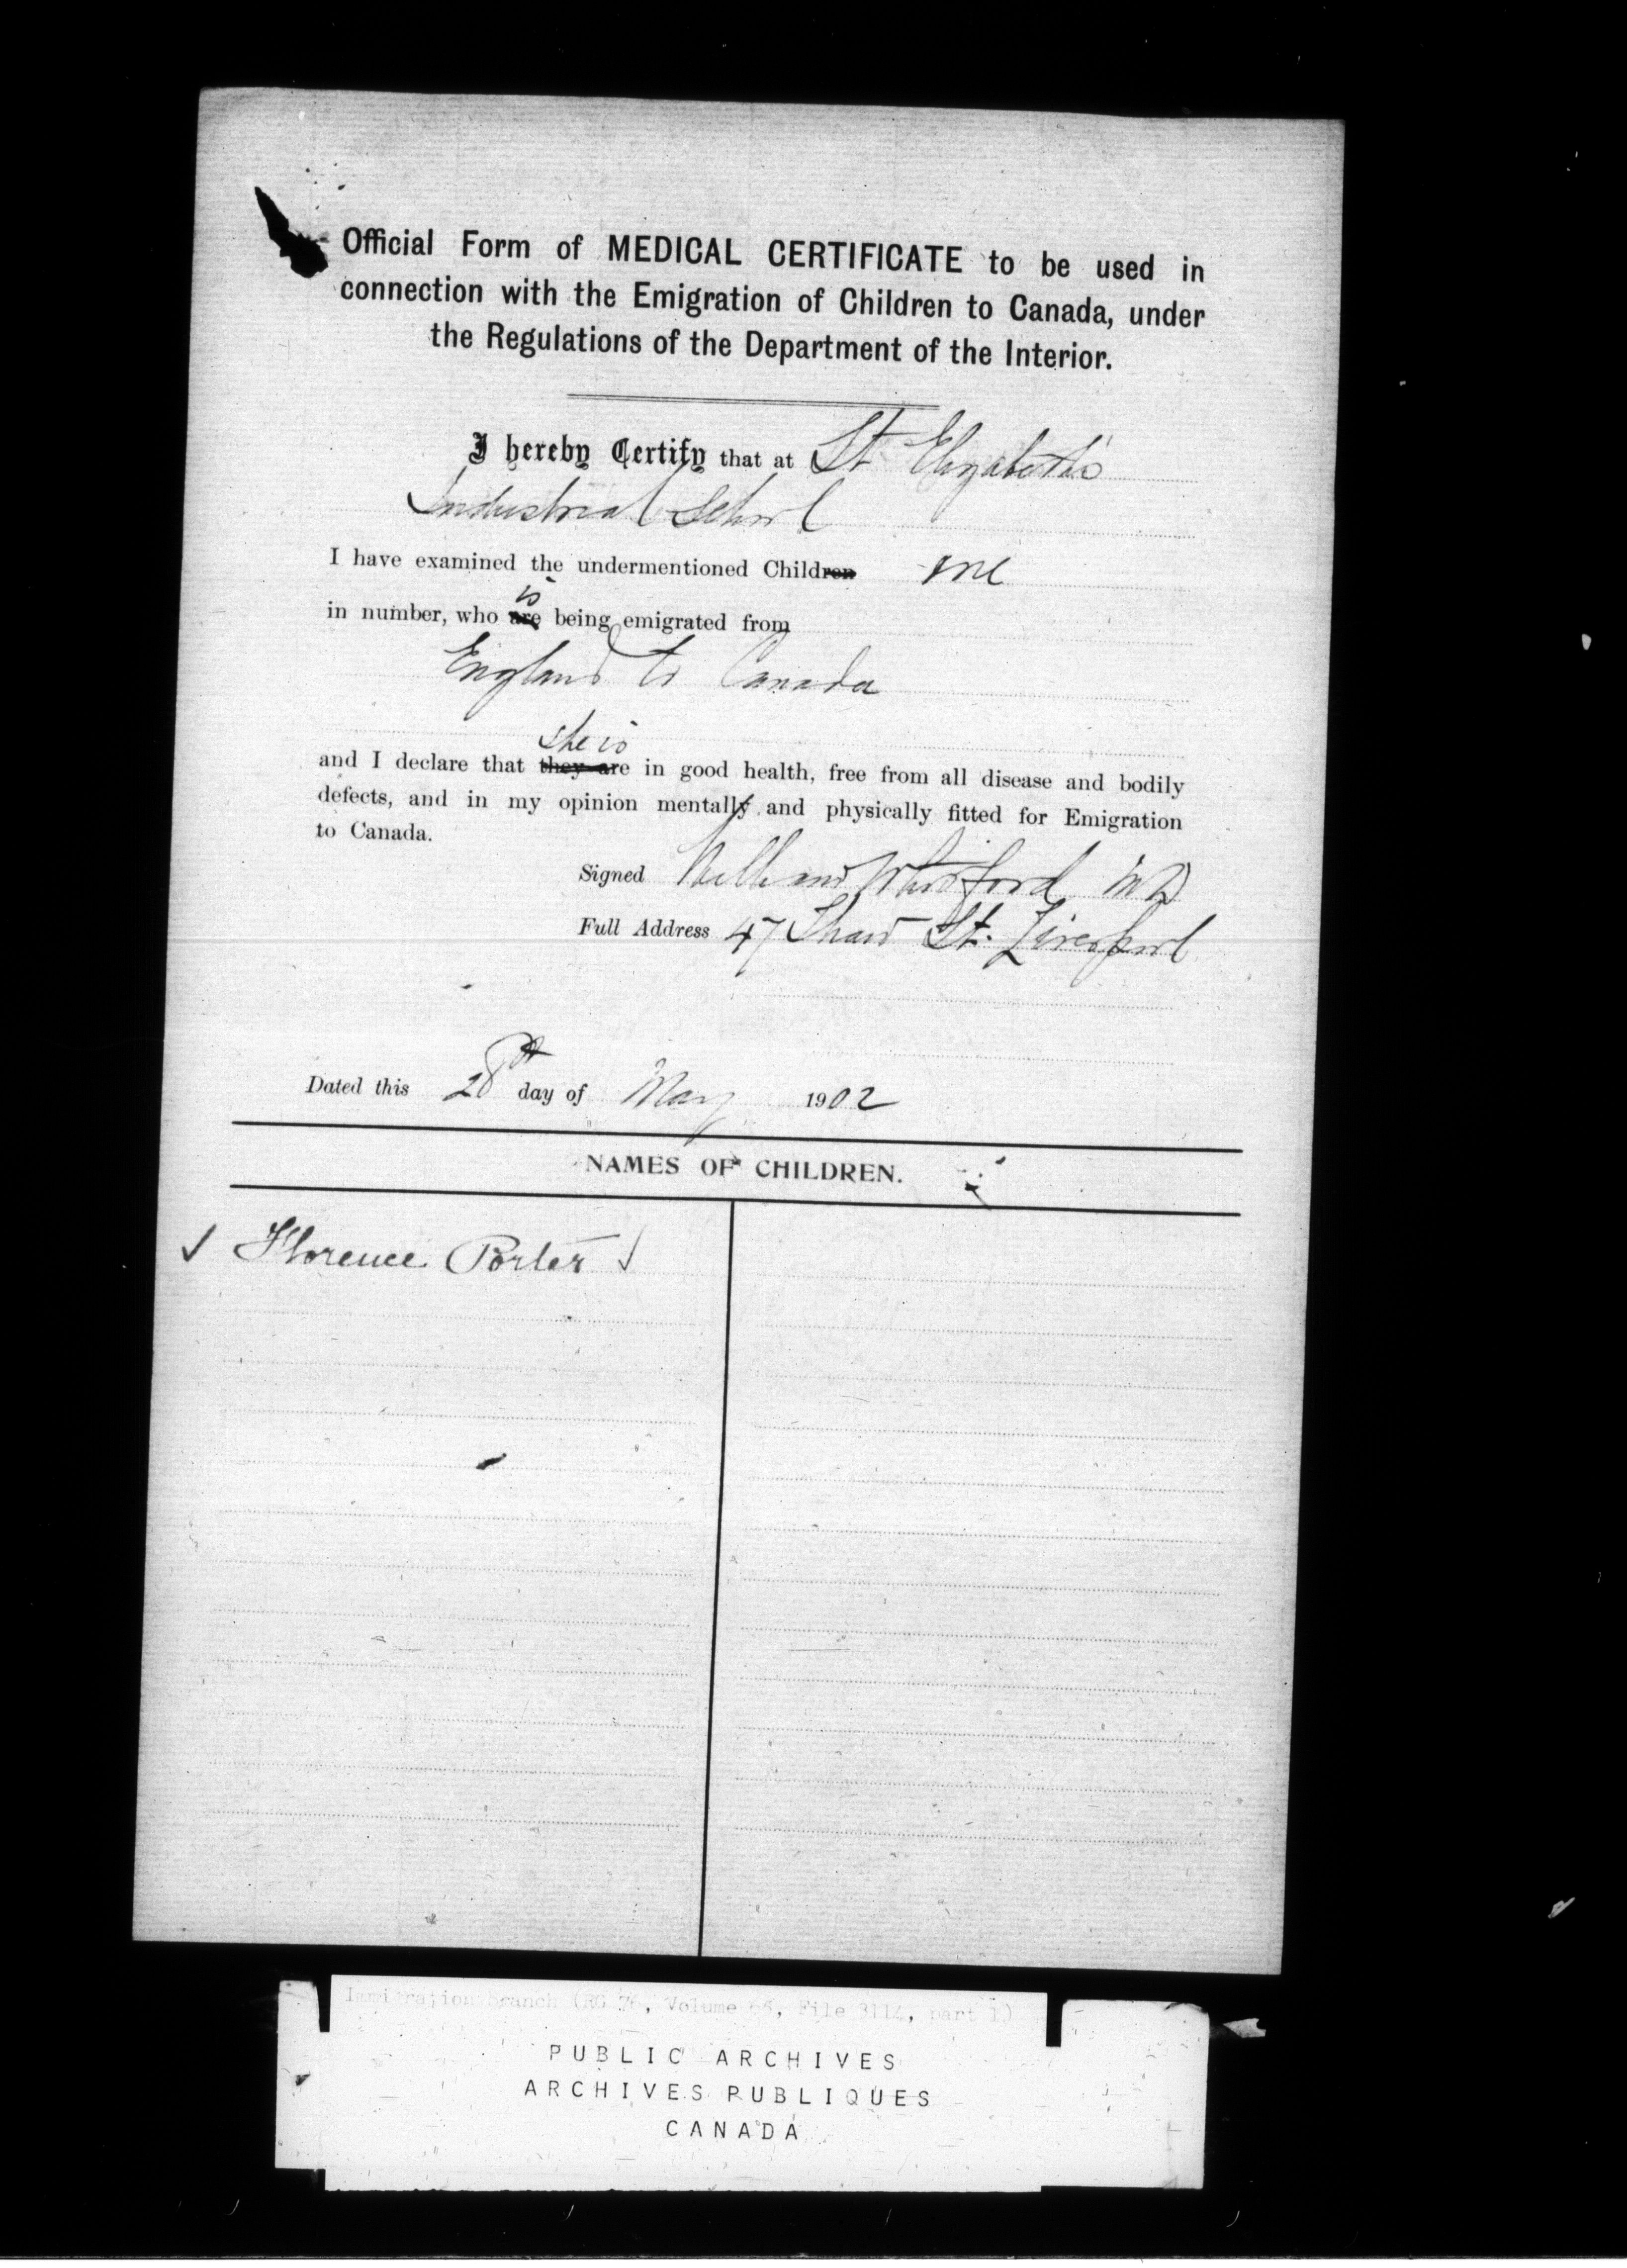 Official Form of MEDICAL CERTIFICATE to be used in
connection with the Emigration of Children to Canada, under
the Regulations of the Department of the Interior.
I hereby Certify that at St Elizabeth's
Industrial School
I have examined the undermentioned Children one
is
in number, who are being emigrated from
England to Canada
she is
and I declare that they are in good health, free from all disease and bodily
defects, and in my opinion mentally and physically fitted for Emigration
to Canada.
Signed William MD
Full Address 47 Shaw St. Liverpool
Dated this 28th day of May 1902
NAMES OF CHILDREN.
Florence Porter
Immigration Branch (RG 76, Volume 65, File 3114, part 1)
PUBLIC ARCHIVES
ARCHIVES PUBLIQUES
CANADA